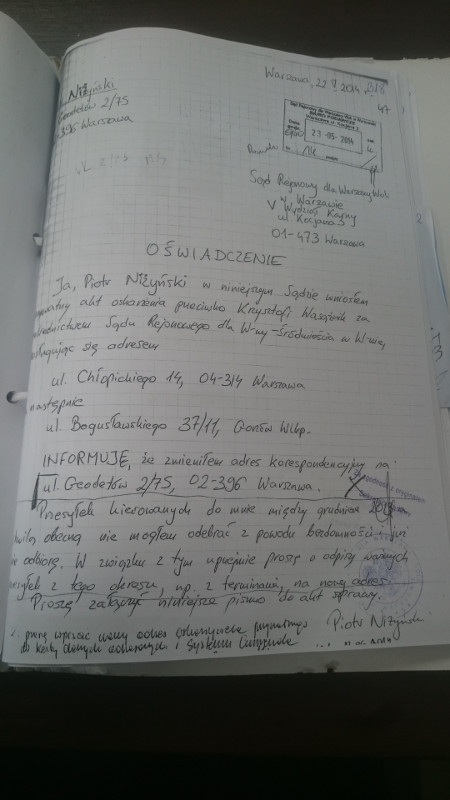 Niżyński
Geodetów 2/75
396 Warszawa
Warszawa, 22 V 2014 r.
47
23-05-2014
Sąd Rejonowy dla Warszawy Woli
w Warszawie
V Wydział Karny
ul. Kocjana 3
01-473 Warszawa
2
OŚWIADCZENIE
Ja, Piotr Niżyński w niniejszym Sądzie wniosłem
prywatny akt oskarżenia przeciwko Krzysztofi za
pośrednictwem Sądu Rejonowego dla W-wy-Śródmieścia w W-wie,
posługując się adresem
ul. Chłopickiego 14, 04-314 Warszawa
następnie
ul. Bogusławskiego 37/11, Gorzów Wlkp.
INFORMUJĘ, że zmieniłem adres korespondencyjny na:
ul. Geodetów 2/75, 02-396 Warszawa.
Przesyłek kierowanych do mnie między grudniem
chwilą obecną nie mogłem odebrać z powodu bezdomności i już
nie odbiorę. W związku z tym uprzejmie proszę o odpisy ważnych
przesyłek z tego okresu, np. z terminami, na nowy adres.
Proszę załączyć niniejsze pismo do akt sprawy.
Piotr Niżyński
proszę wpisać nowy adres oskarżyciela prywatnego
do karty danych i systemu